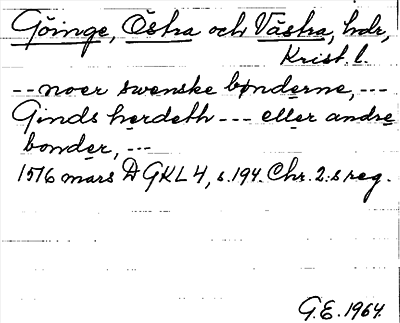 Göinge, Östra och Västra, hdr,
Krist. l.
-- noer swenske bønderne, ---
Ginds herdeth --- eller andre
bonder, ---
1516 mars D GKL 4, s. 194. Chr. 2:s reg.
G.E. 1964.